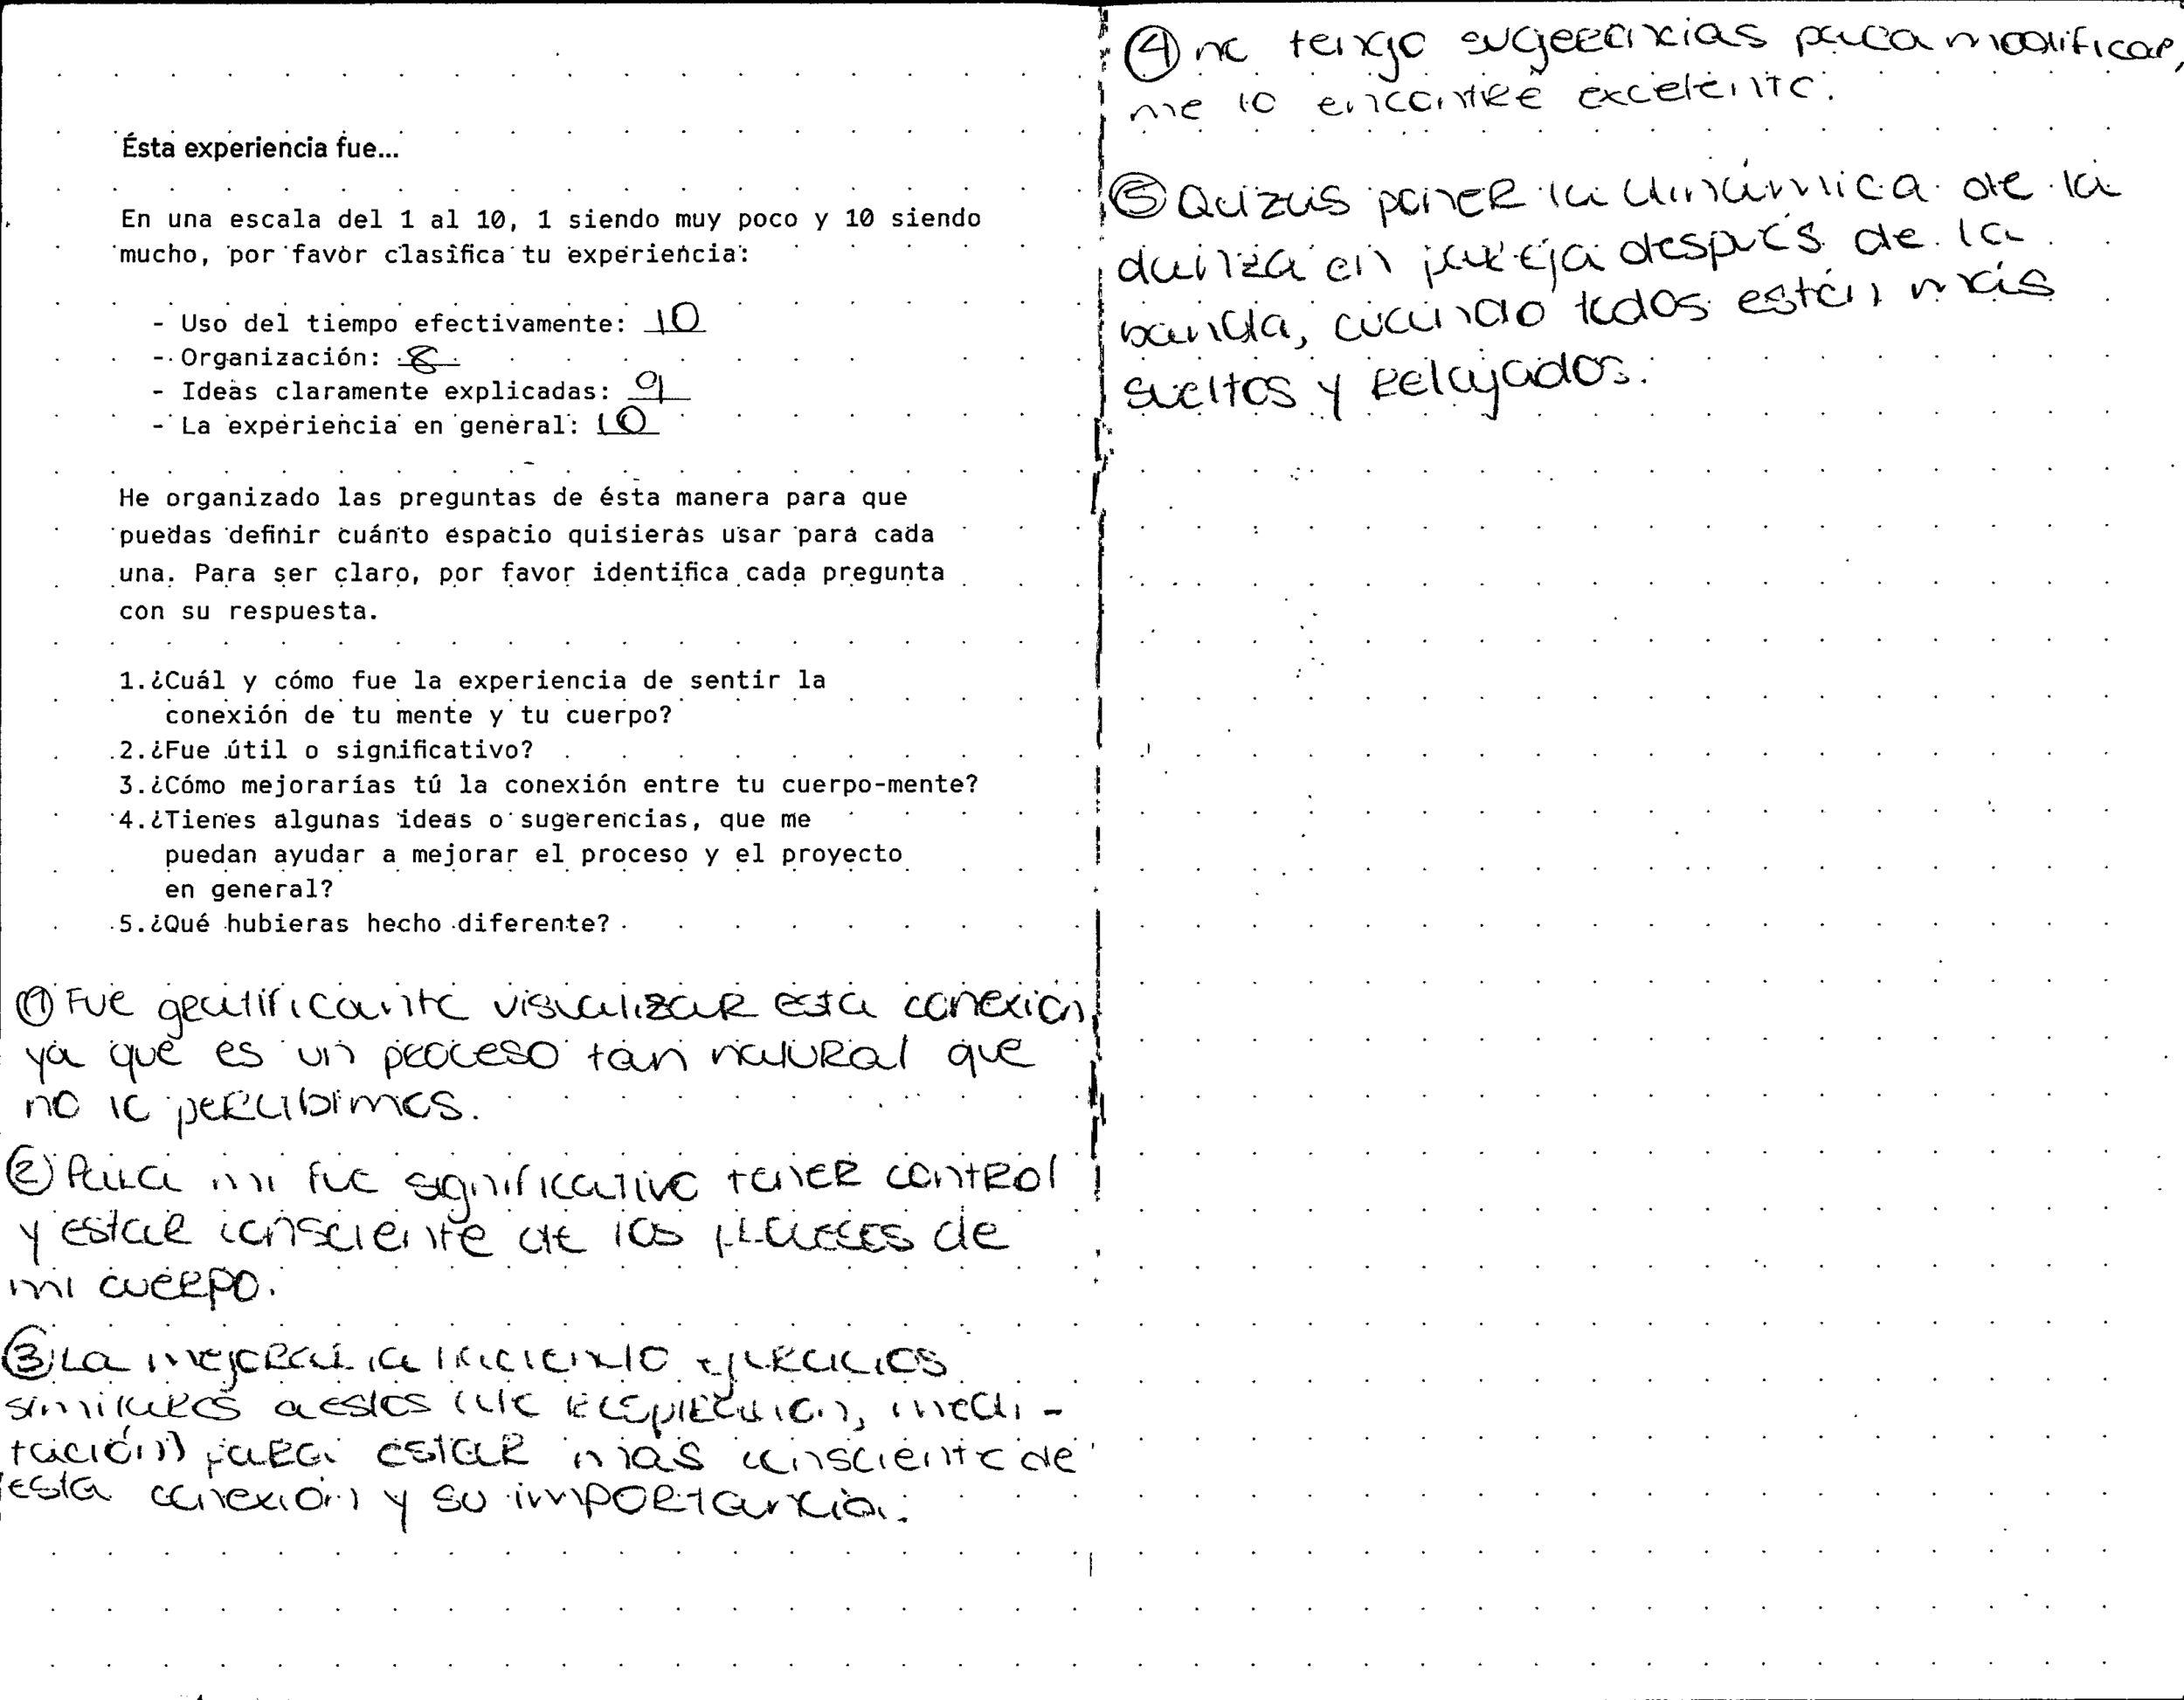 Ésta experiencia fue...
En una escala del 1 al 10, 1 siendo muy poco y 10 siendo
mucho, por favor clasifica tu experiencia:
- Uso del tiempo efectivamente: 10
- Organización: 8
- Ideas claramente explicadas: 9
- La experiencia en general: 10
He organizado las preguntas de ésta manera para que
puedas definir cuánto espacio quisieras usar para cada
una. Para ser claro, por favor identifica cada pregunta
con su respuesta.
1.¿Cuál y cómo fue la experiencia de sentir la
conexión de tu mente y tu cuerpo?
2.¿Fue útil o significativo?
3.¿Cómo mejorarías tú la conexión entre tu cuerpo-mente?
4.¿Tienes algunas ideas o sugerencias, que me
puedan ayudar a mejorar el proceso y el proyecto
en general?
5.¿Qué hubieras hecho diferente?
① Fue gratificante visualizar esta conexión
ya que es un proceso tan natural que
no lo percibimos.
② Para mi fue significativo tener control
y estar consciente de los de
mi cuerpo.
③ La mejoraría haciendo ejercicios
similares a estos (de respiración, medi-
tación) para estar más consciente de
esta conexión y su importancia.
④ no tengo sugerencias para modificar,
me lo encontré excelente.
⑤ Quizás poner la dinámica de la
danza en pareja después de la
banda, cuando todos estén más
sueltos y relajados.